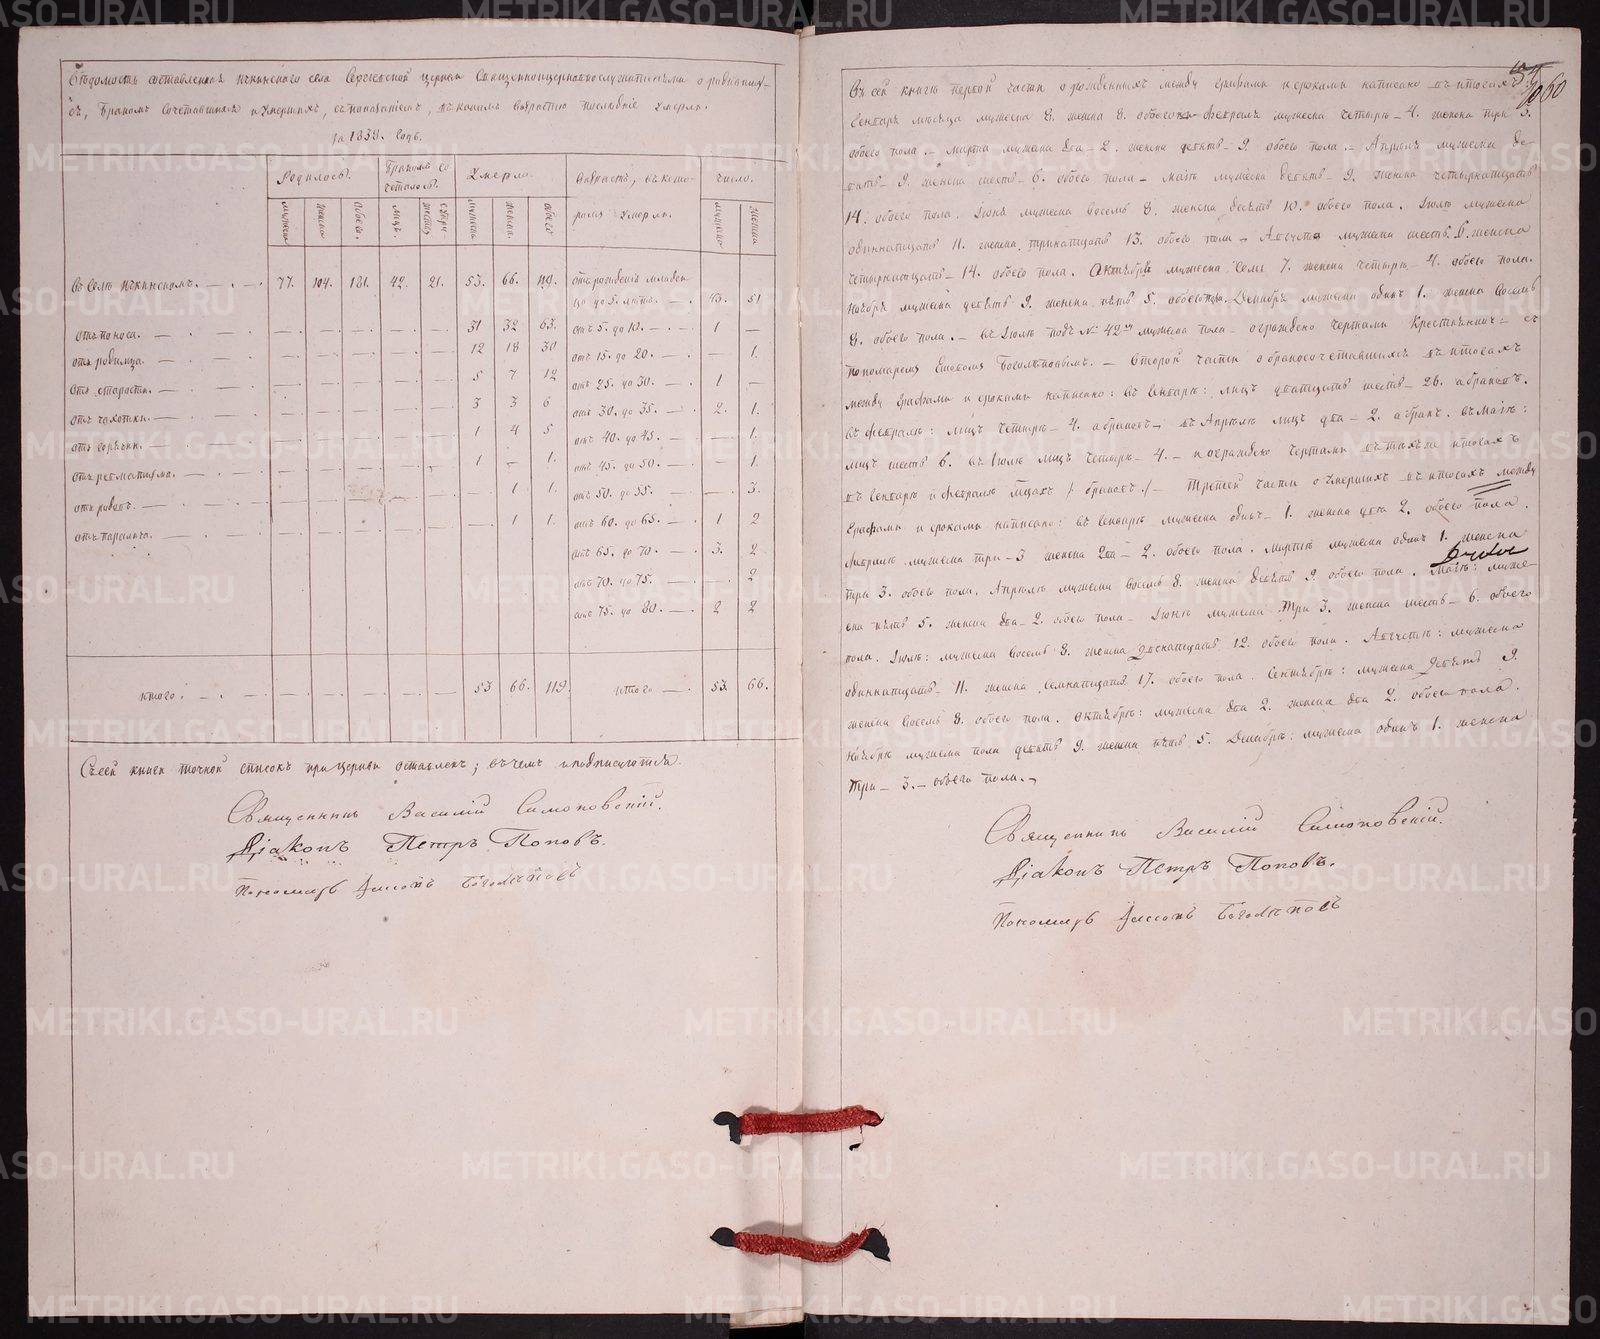 Вѣдомость составленная Ичкинского села Сергіевской церкви Священноцерковнослужителями о родивших-
ся, бракомъ сочетавшихся и умершихъ, съ показаніемъ, въ какомъ возрастѣ послѣдніе умерли.
за 1838. годъ.
Родилось. Бракомъ со- Умерло. Возрастъ, въ кото- число.
четалось. ромъ умерли.
мужеска женска обоего. лицъ. мужеска женска. обоего мужеска женска
Въ селѣ Ичкинскомъ. 77. 104. 181. 42. 21. 53. 66. 119. отъ рожденія младен-
ца до 5. лѣтъ. 43. 51
отъ поноса. 31 32 63. отъ 5. до 10. 1 —
отъ родимца. 12 18 30 отъ 15. до 20. — 1.
отъ старости. 5 7 12 отъ 25. до 30. 1 —
отъ чахотки. 3 3 6 отъ 30. до 35. 2. 1.
отъ горячки. 1 4 5 отъ 40. до 45. — 1.
отъ ревматизма. 1 — 1. отъ 45. до 50. — 1.
отъ родовъ. — 1 1. отъ 50. до 55. — 3.
отъ паралича. — 1 1. отъ 60. до 65. 1 2
отъ 65. до 70. 3. 2
отъ 70. до 75. — 2
отъ 75. до 80. 2 2
итого. 53 66. 119. итого 53. 66.
Съ сей книги точной списокъ при церкви оставленъ; въ чемъ и подписуются.
Священникъ Василій
Діаконъ Петръ Поповъ.
Пономарь Боголѣповъ
60
Въ сей книгѣ первой части о рожденныхъ между графами и сроками написано въ итогахъ
Генварь мѣсяца мужеска 8. женска 8. обоего пола Февраль мужеска четыре 4. женска три 3.
обоего пола. Марта мужеска два 2. женска девять 9. обоего пола. Апрѣль мужеска де-
вять 9. женска шесть 6. обоего пола Май мужеска девять 9. женска четырнатцать
14. обоего пола. Іюнь мужеска восемь 8. женска десять 10. обоего пола. Іюль мужеска
одиннатцать 11. женска тринатцать 13. обоего пола. Августъ мужеска шесть 6. женска
четырнатцать 14. обоего пола. Октябрь мужеска семь 7. женска четыре 4. обоего пола.
Ноябрь мужеска девять 9. женска пять 5. обоего пола. Декабрь мужеска одинъ 1. женска восемь
8. обоего пола. въ Іюлѣ подъ № 42м мужеска пола ограждено чертами Крестьянинъ съ
пономаремъ Боголѣповымъ. Второй части о бракосочетавшихся въ итогахъ
между графами и сроками написано: въ Генварѣ: лицъ дватцать шесть 26. а браковъ.
въ Февралѣ: лицъ четыре 4. а браковъ въ Апрѣлѣ лицъ два 2. а бракъ. въ Маѣ:
лицъ шесть 6. въ Іюлѣ лицъ четыре 4. и ограждено чертами въ итогахъ
въ Генварѣ и Февралѣ / браковъ./ Третьей части о умершихъ въ итогахъ между
графами и сроками написано: въ Генварѣ мужеска одинъ 1. женска два 2. обоего пола.
Февралѣ мужеска три 3 женска два 2. обоего пола. Мартѣ мужеска одинъ 1. женска
три 3. обоего пола. Апрѣлѣ мужеска восемь 8. женска девять 9. обоего пола. Маѣ: муже-
ска пять 5. женска два 2. обоего пола Іюнѣ мужеска три 3. женска шесть 6. обоего
пола. Іюлѣ: мужеска восемь 8. женска двенатцать 12. обоего пола. Августѣ: мужеска
одиннатцать 11. женска семнатцать 17. обоего пола. Сентябрѣ: мужеска девять 9.
женска восемь 8. обоего пола. Октябрѣ: мужеска два 2. женска два 2. обоего пола.
Ноябрѣ мужеска пола девять 9. женска пять 5. Декабрѣ: мужеска одинъ 1. женска
три 3. обоего пола.
Священникъ Василій
Діаконъ Петръ Поповъ.
Пономарь Боголѣповъ
METRIKI.GASO-URAL.RU